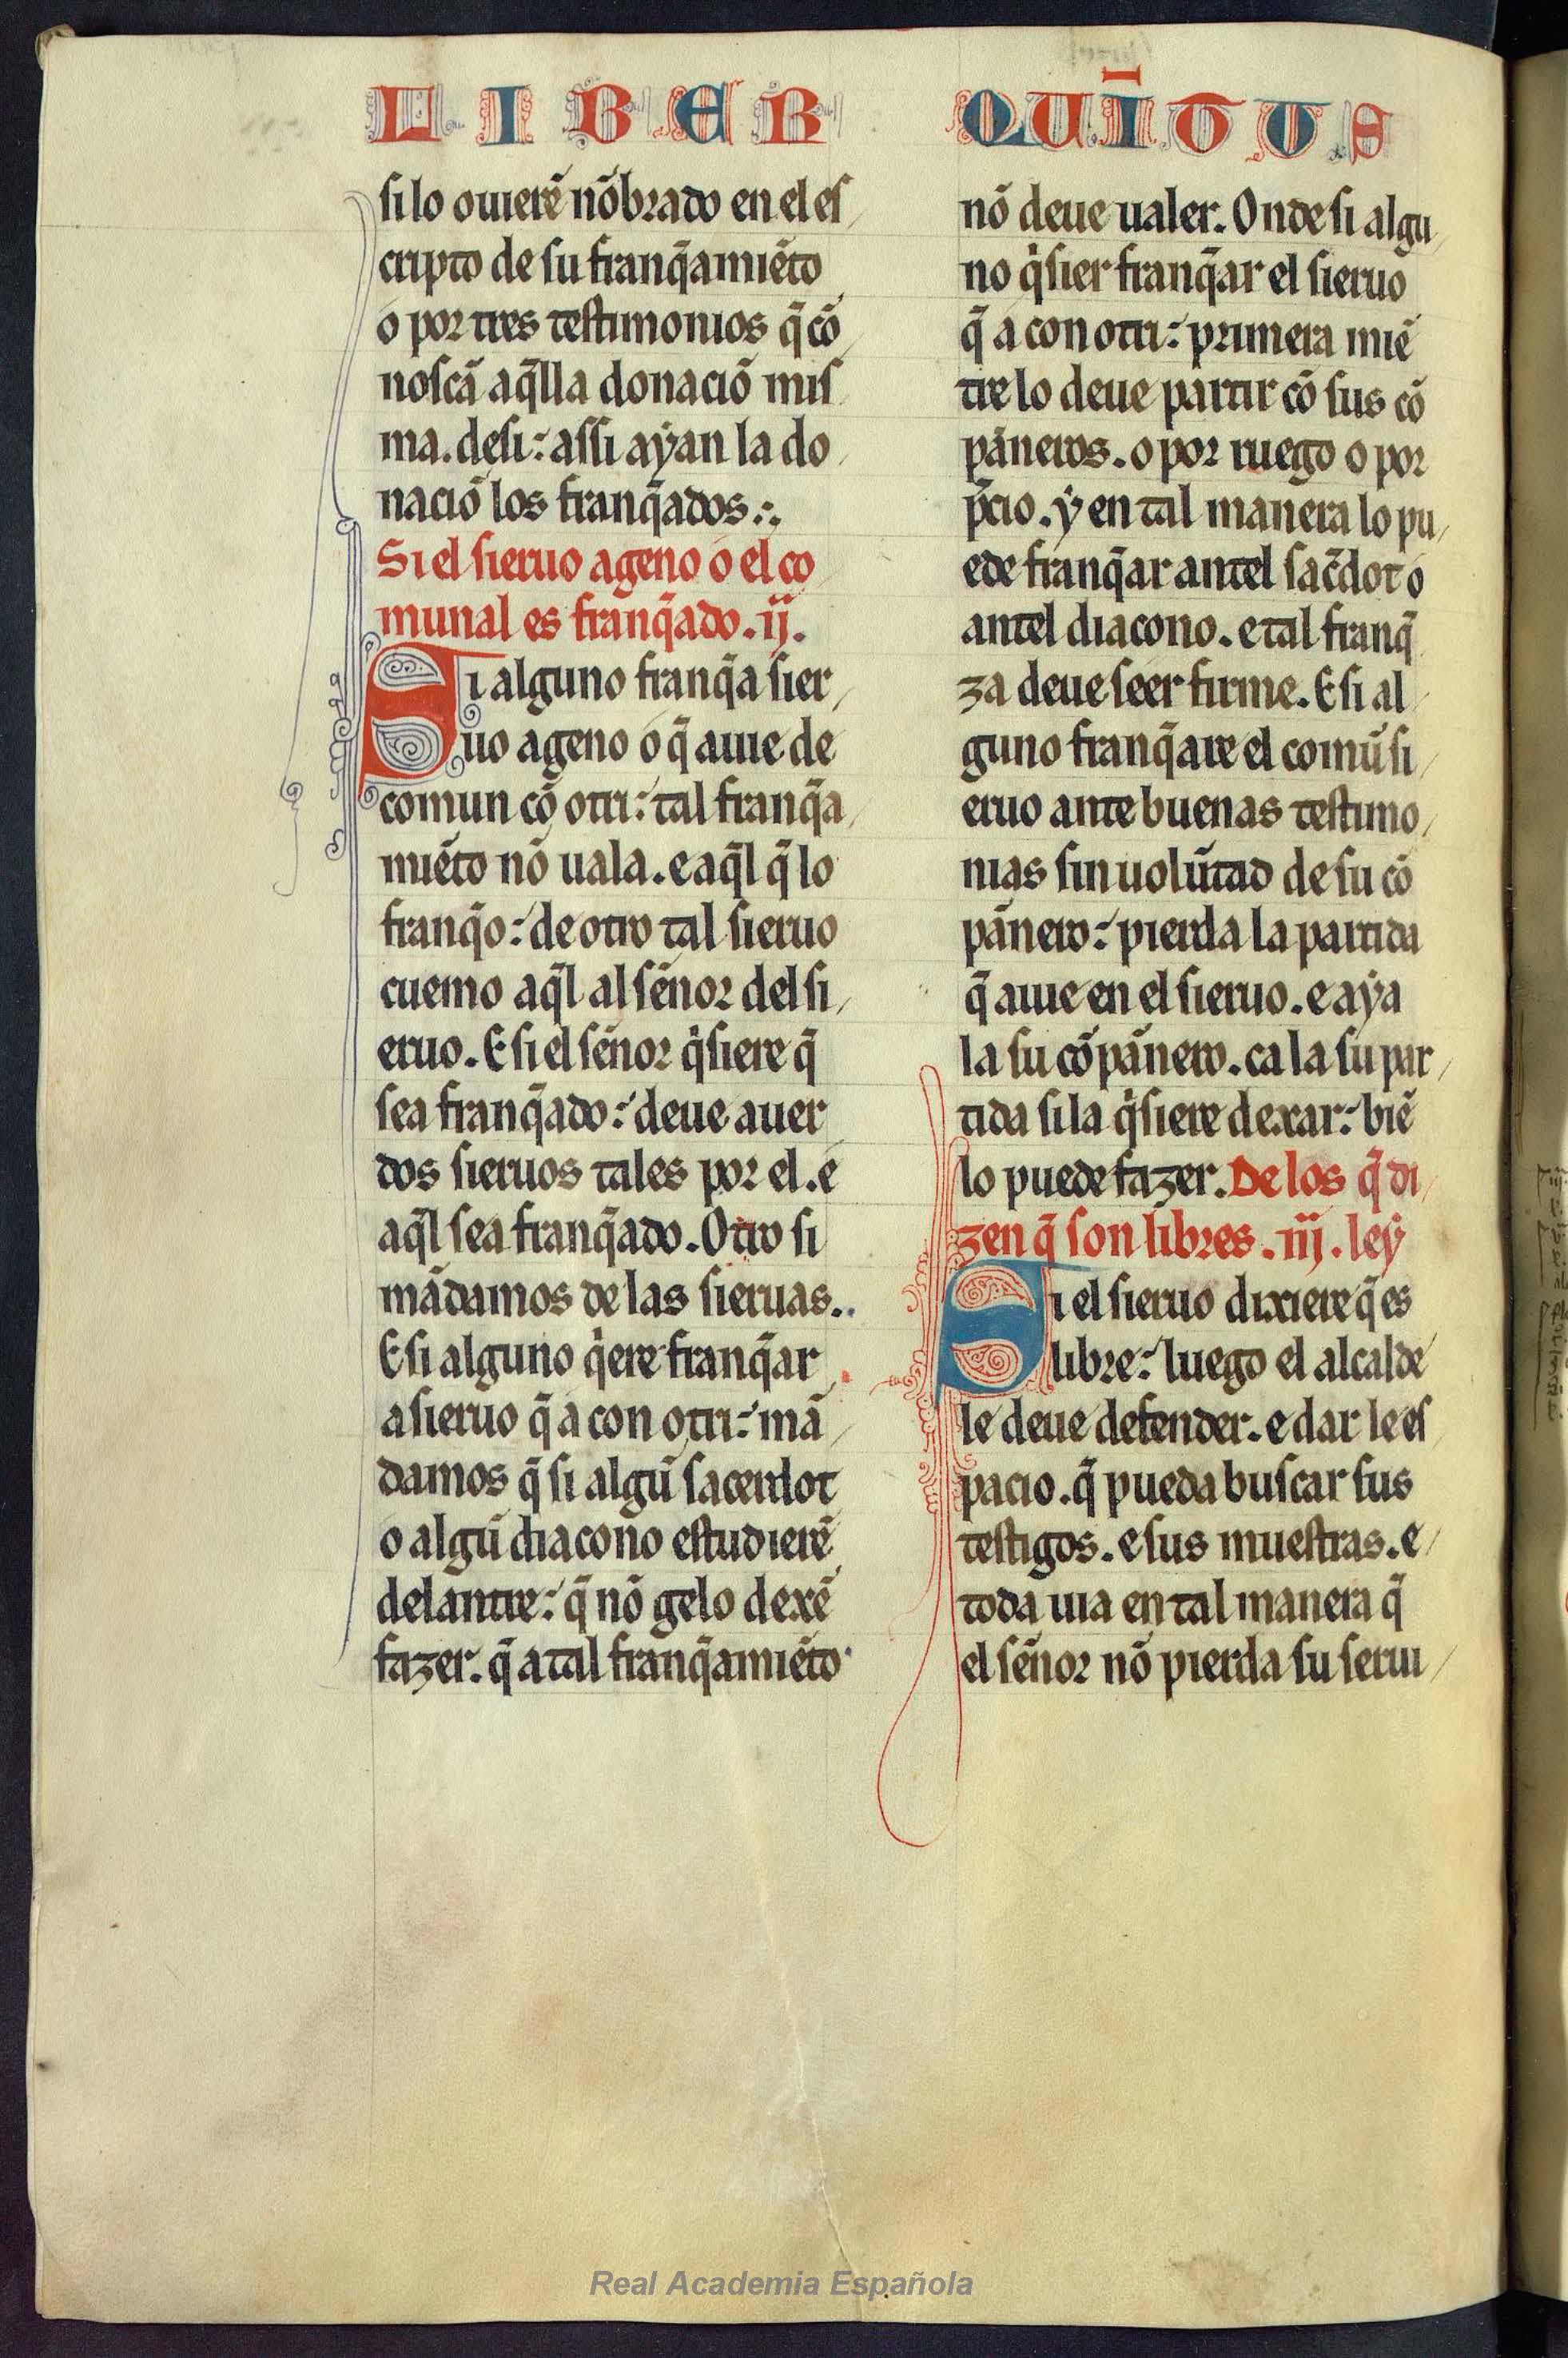 LIBER QUĪTUS
si lo ouierẽ nõbrado en el es
cripto de su franq̃amiẽto
o por tres testimonios q̃ cõ
noscã aq̃lla donaciõ mis
ma. desi: assi ayan la do
naciõ los franq̃ados.
Si el sieruo ageno o el co
munal es franq̃ado. ij.
Si alguno franq̃a sier
uo ageno o q̃ auie de
comun cõ otri: tal franq̃a
miẽto nõ uala. e aq̃l q̃ lo
franq̃o: de otro tal sieruo
cuemo aq̃l al sẽnor del si
eruo. E si el sẽnor q̇siere q̃
sea franq̃ado: deue auer
dos sieruos tales por el. e
aq̃l sea franq̃ado. Otro si
mãdamos de las sieruas..
E si alguno q̇ere franq̃ar
a sieruo q̃ a con otri: mã
damos q̃ si algũ sacerdot
o algũ diacono estudierẽ
delantre: q̃ nõ gelo dexẽ
fazer. q̃ a tal franq̃amiẽto
nõ deue ualer. Onde si algu
no q̇sier franq̃ar el sieruo
q̃ a con otri: primera miẽ
tre lo deue partir cõ sus cõ
pãneros. o por ruego o por
p̃cio. y en tal manera lo pu
ede franq̃ar antel sac̃dot o
antel diacono. e tal franq̃
za deue seer firme. E si al
guno franq̃are el comũ si
eruo ante buenas testimo
nias sin uolũtad de su cõ
pãnero: pierda la partida
q̃ auie en el sieruo. e aya
la su cõpãnero. ca la su par
tida si la q̇siere dexar: biẽ
lo puede fazer. De los q̃ di
zen q̃ son libres. iij. ley
Si el sieruo dixiere q̃ es
libre: luego el alcalde
le deue defender. e dar le es
pacio. q̃ pueda buscar sus
testigos. e sus muestras. e
toda uia en tal manera q̃
el sẽnor nõ pierda su serui
Real Academia Española